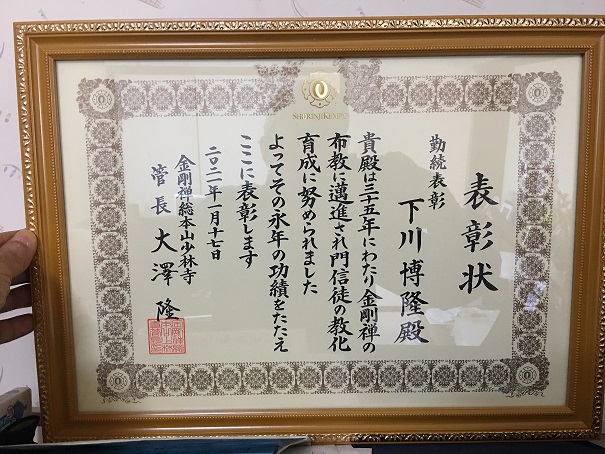 SHORINJI KEMPO
表彰状
勤続表彰
下川博隆殿
貴殿は三十五年にわたり金剛禅の
布教に邁進され門信徒の教化
育成に努められました
よってその永年の功績をたたえ
ここに表彰します
二〇二一年一月十七日
金剛禅総本山少林寺
管長大澤隆